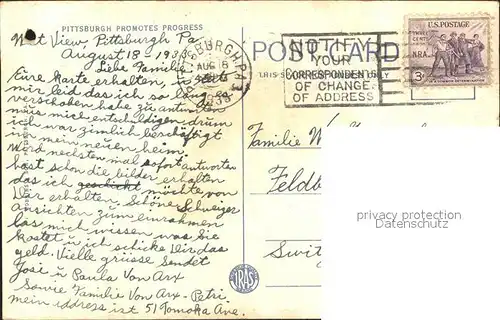 PITTSBURGH PROMOTES PROGRESS
West View, Pittsburgh Pa.
August 18 1933
Liebe Familie
Eure karte erhalten, es tut
mir leid das ich so lang es
verschoben habe zu antworten
müs mich entschuldigen drum
ich war zimlich beschäftigt
in mein neuen heim.
Word nechsten mal sofort antworten
hast schon die bilder erhalten
das ich geschickt möchte von
Dir erhalten. Schöne Schweizer
ansichten zum einrahmen
las mich wissen was sie
kostet u ich schicke Dir das
geld. Vielle grüsse sendet
Josi u Paula Von Arx
Sowie Familie Von Arx-Petri
mein iddress ist 51 Tomoka Ave.
POST CARD
THIS S
ONLY
PITTSBURGH, PA.
AUG
1933
NOTIFY
YOUR
CORRESPONDENTS
OF CHANGE
OF ADDRESS
U.S. POSTAGE
THREE CENTS
N.R.A.
3¢
Familie
Feldb
Swit
privacy protection
Datenschutz